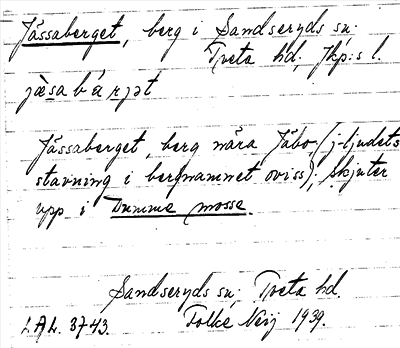 Jässaberget, berg i Sandseryds sn;
Tveta hd, Jkp:s l.
jæsabærjət
Jässaberget, berg nära Jäbo (j-ljudets
stavning i bergnamnet oviss); skjuter
upp i Dumme mosse.
Sandseryds sn; Tveta hd.
L.A.L. 3743. Folke Neij 1939.